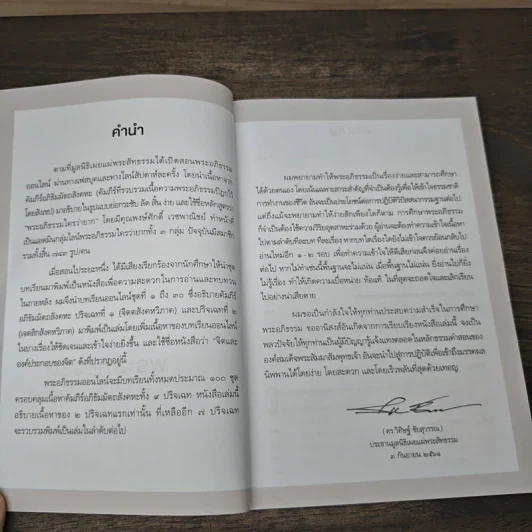 คำนำ
ตามที่มูลนิธิเผยแผ่พระสัทธรรมได้เปิดสอนพระอภิธรรม
ออนไลน์ ผ่านทางเฟสบุคและทางไลน์สัปดาห์ละครั้ง โดยนำเนื้อหาจาก
คัมภีร์อภิธัมมัตถสังคหะ (คัมภีร์ที่รวบรวมเนื้อความพระอภิธรรมปิฎกไว้
โดยสังเขป) มาอธิบายในรูปแบบย่อกระชับ ลัด สั้น ง่าย และใช้ชื่อหลักสูตรว่า
"พระอภิธรรมใครว่ายาก" โดยมีคุณพงษ์ศักดิ์ เวชพาณิชย์ ทำหน้าที่
เป็นแอดมินกลุ่มไลน์พระอภิธรรมใครว่ายากทั้ง ๓ กลุ่ม ปัจจุบันมีสมาชิก
รวมทั้งสิ้น รูป/คน
เมื่อสอนไประยะหนึ่ง ได้มีเสียงเรียกร้องจากนักศึกษาให้นำชุด
บทเรียนมาพิมพ์เป็นหนังสือเพื่อความสะดวกในการอ่านและทบทวน
ในภายหลัง ผมจึงนำบทเรียนออนไลน์ชุดที่ ๑ ถึง ๓๐ ซึ่งอธิบายคัมภีร์
อภิธัมมัตถสังคหะ ปริจเฉทที่ ๑ (จิตตสังคหวิภาค) และปริจเฉทที่ ๒
(เจตสิกสังคหวิภาค) มาพิมพ์เป็นเล่มโดยเพิ่มเนื้อหาของบทเรียนออนไลน์
ในบางเรื่องให้ชัดเจนและเข้าใจง่ายยิ่งขึ้น และใช้ชื่อหนังสือว่า "จิตและ
องค์ประกอบของจิต" ดังที่ปรากฏอยู่นี้
พระอภิธรรมออนไลน์จะมีบทเรียนทั้งหมดประมาณ ๑๐๐ ชุด
ครอบคลุมเนื้อหาคัมภีร์อภิธัมมัตถสังคหะทั้ง ๙ ปริจเฉท หนังสือเล่มนี้
อธิบายเนื้อหาของ ๒ ปริจเฉทแรกเท่านั้น ที่เหลืออีก ๗ ปริจเฉท
จะรวบรวมพิมพ์เป็นเล่มในลำดับต่อไป
ผมพยายามทำให้พระอภิธรรมเป็นเรื่องง่ายและสามารถศึกษา
ได้ด้วยตนเอง โดยเน้นเฉพาะสาระสำคัญที่จำเป็นต้องรู้เพื่อให้เข้าใจธรรมชาติ
การทำงานของชีวิต อันจะเป็นประโยชน์ต่อการปฏิบัติวิปัสสนากรรมฐานต่อไป
แต่ถึงแม้จะพยายามทำให้ง่ายสักเพียงใดก็ตาม การศึกษาพระอภิธรรม
ก็จำเป็นต้องใช้ความวิริยะอุตสาหะร่วมด้วย ผู้อ่านจะต้องทำความเข้าใจเนื้อหา
ไปตามลำดับทีละบท ทีละเรื่อง หากบทใดเรื่องใดยังไม่เข้าใจควรย้อนกลับไป
อ่านใหม่อีก ๑-๒ รอบ เพื่อทำความเข้าใจให้ดีเสียก่อนจึงค่อยอ่านเรื่อง
ต่อไป หากไม่ทำเช่นนี้พื้นฐานจะไม่แน่น เมื่อพื้นฐานไม่แน่น ยิ่งอ่านไปก็ยิ่ง
ไม่รู้เรื่อง ทำให้เกิดความเบื่อหน่าย ท้อแท้ ในที่สุดจะถอดใจและเลิกเรียน
ไปอย่างน่าเสียดาย
ผมขอเป็นกำลังใจให้ทุกท่านประสบความสำเร็จในการศึกษา
พระอภิธรรม ขออานิสงส์อันเกิดจากการเรียบเรียงหนังสือเล่มนี้ จงเป็น
พลวปัจจัยให้ทุกท่านเป็นผู้มีปัญญารู้แจ้งแทงตลอดในหลักธรรมคำสอนของ
องค์สมเด็จพระสัมมาสัมพุทธเจ้า อันจะนำไปสู่การปฏิบัติเพื่อเข้าถึงมรรคผล
นิพพานได้โดยง่าย โดยสะดวก และโดยเร็วพลันที่สุดด้วยเทอญ
(ดร.วิศิษฐ์ ชัยสุวรรณ)
ประธานมูลนิธิเผยแผ่พระสัทธรรม
๓ กันยายน ๒๕๖๑